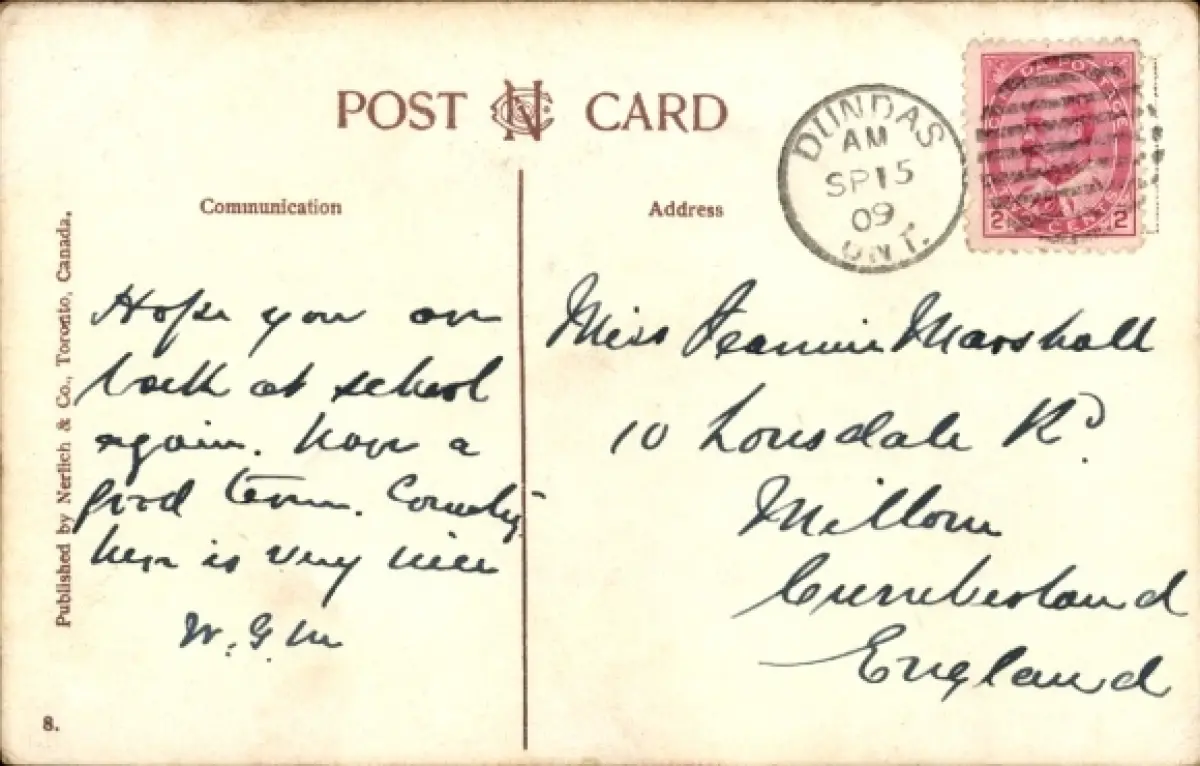 POST CARD
DUNDAS
AM
SP 15
09
ONT.
CANADA POSTAGE
2 CENTS 2
Communication
Address
Hope you are
back at school
again. Have a
good term. Country
here is very nice
W. G. M
Miss Jeannie Marshall
10 Lonsdale Rd.
Millom
Cumberland
England
Published by Nerlich & Co., Toronto, Canada.
8.